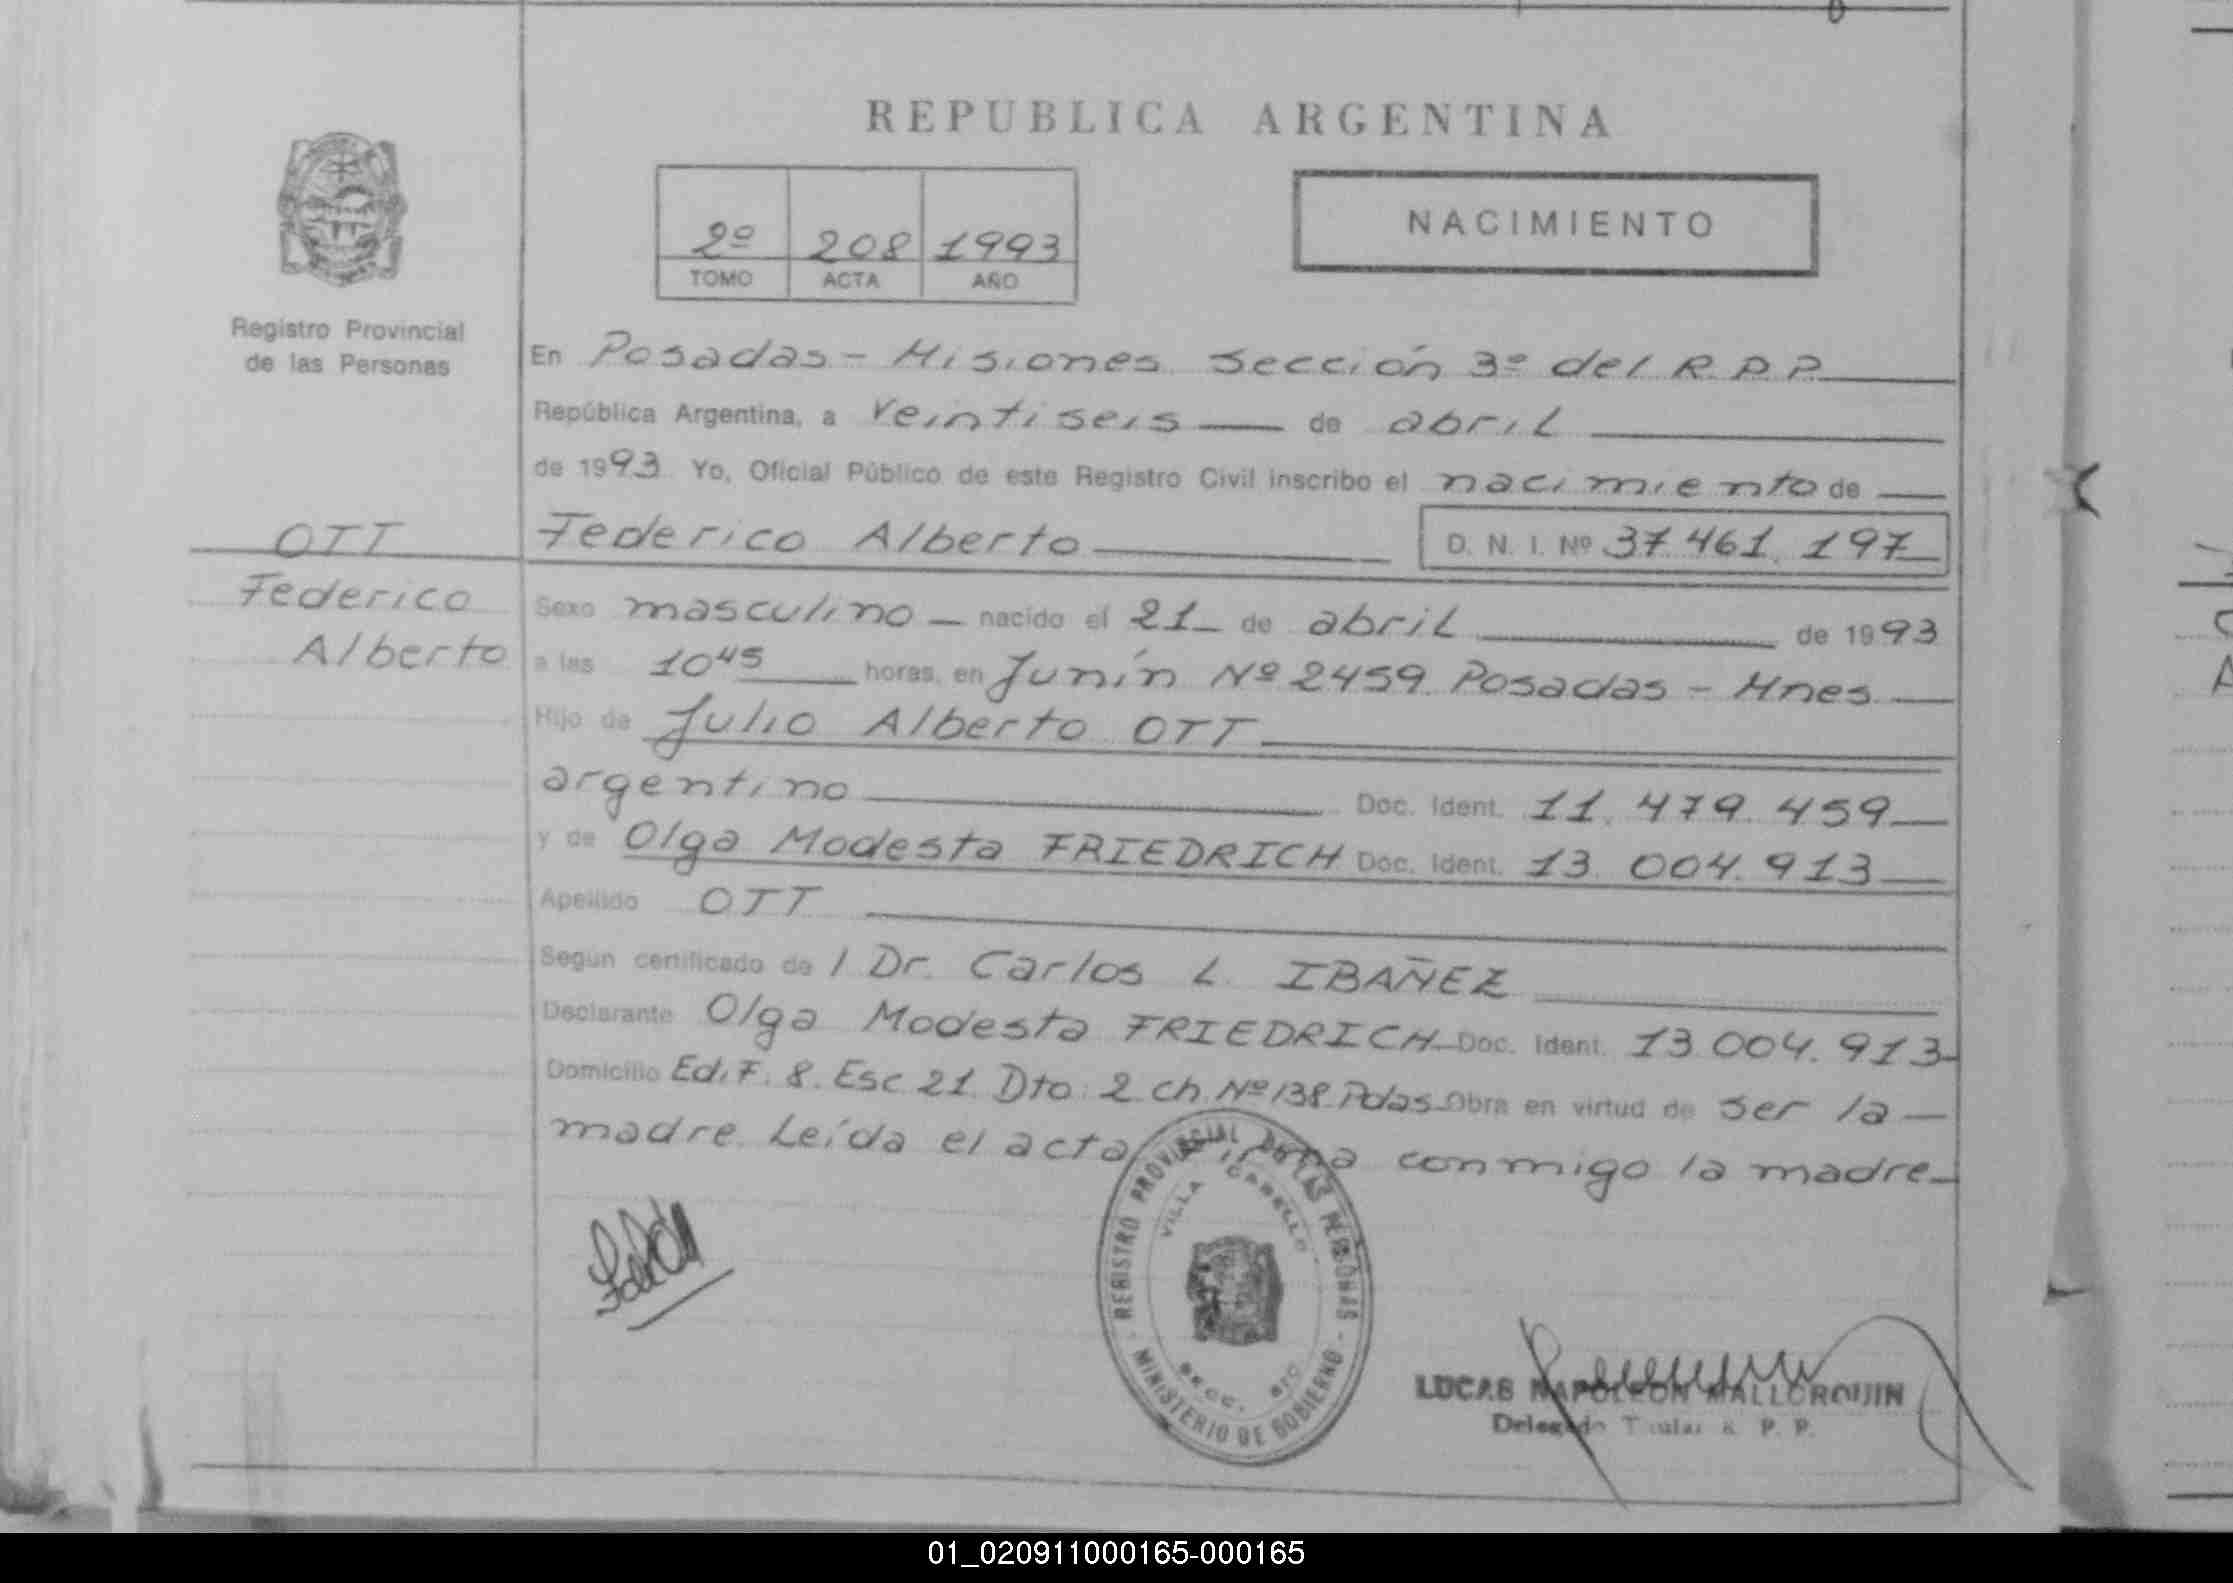 REPUBLICA ARGENTINA
NACIMIENTO
2º 208 1993
TOMO ACTA AÑO
Registro Provincial
de las Personas
En Posadas - Misiones Sección 3º del R.P.P.
República Argentina, a veintiseis de abril
de 1993 Yo, Oficial Público de este Registro Civil inscribo el nacimiento de
OTT
Federico
Alberto
Federico Alberto D. N. I. Nº 37.461.197
Sexo masculino nacido el 21 de abril de 1993
a las 10 45 horas, en Junín Nº 2459 Posadas - Mnes
Hijo de Julio Alberto OTT
argentino Doc. Ident. 11.479.459
y de Olga Modesta FRIEDRICH Doc. Ident. 13.004.913
Apellido OTT
Según certificado de l Dr. Carlos L. IBAÑEZ
Declarante Olga Modesta FRIEDRICH Doc. Ident. 13.004.913
Domicilio Edif. 8. Esc 21 Dto: 2 ch. Nº 138 Pdas Obra en virtud de ser la
madre. Leída el acta firma conmigo la madre
REGISTRO PROVINCIAL DE LAS PERSONAS
VILLA CABELLO
MINISTERIO DE GOBIERNO
LUCAS NAPOLEON MALLORQUIN
Delegado Titular R. P. P.
01_020911000165-000165